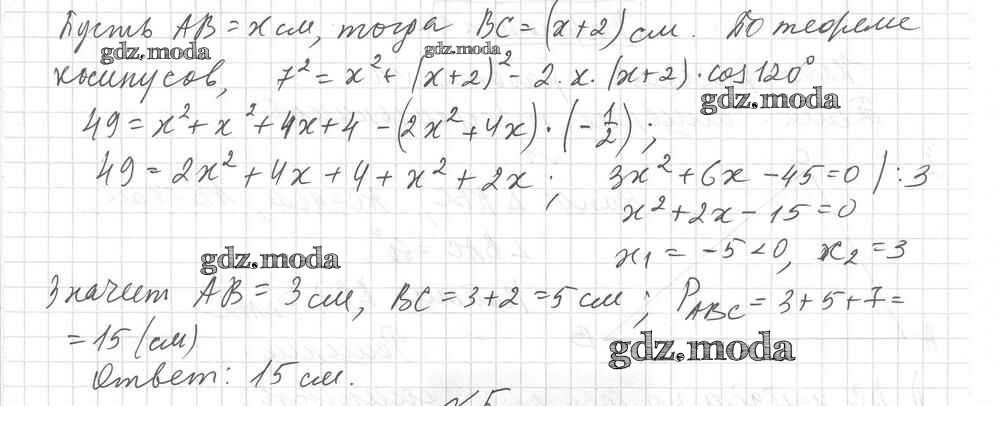 Пусть AB = x см, тогда BC = (x+2) см. По теореме
gdz.moda gdz.moda
косинусов, 7² = x² + (x+2)² - 2·x·(x+2)·cos120°
gdz.moda
49 = x² + x² + 4x + 4 - (2x² + 4x)·(-1/2);
49 = 2x² + 4x + 4 + x² + 2x; 3x² + 6x - 45 = 0 | :3
x² + 2x - 15 = 0
gdz.moda x₁ = -5 < 0, x₂ = 3
Значит AB = 3 см, BC = 3+2 = 5 см; P_ABC = 3+5+7 =
= 15 (см)
gdz.moda
Ответ: 15 см.